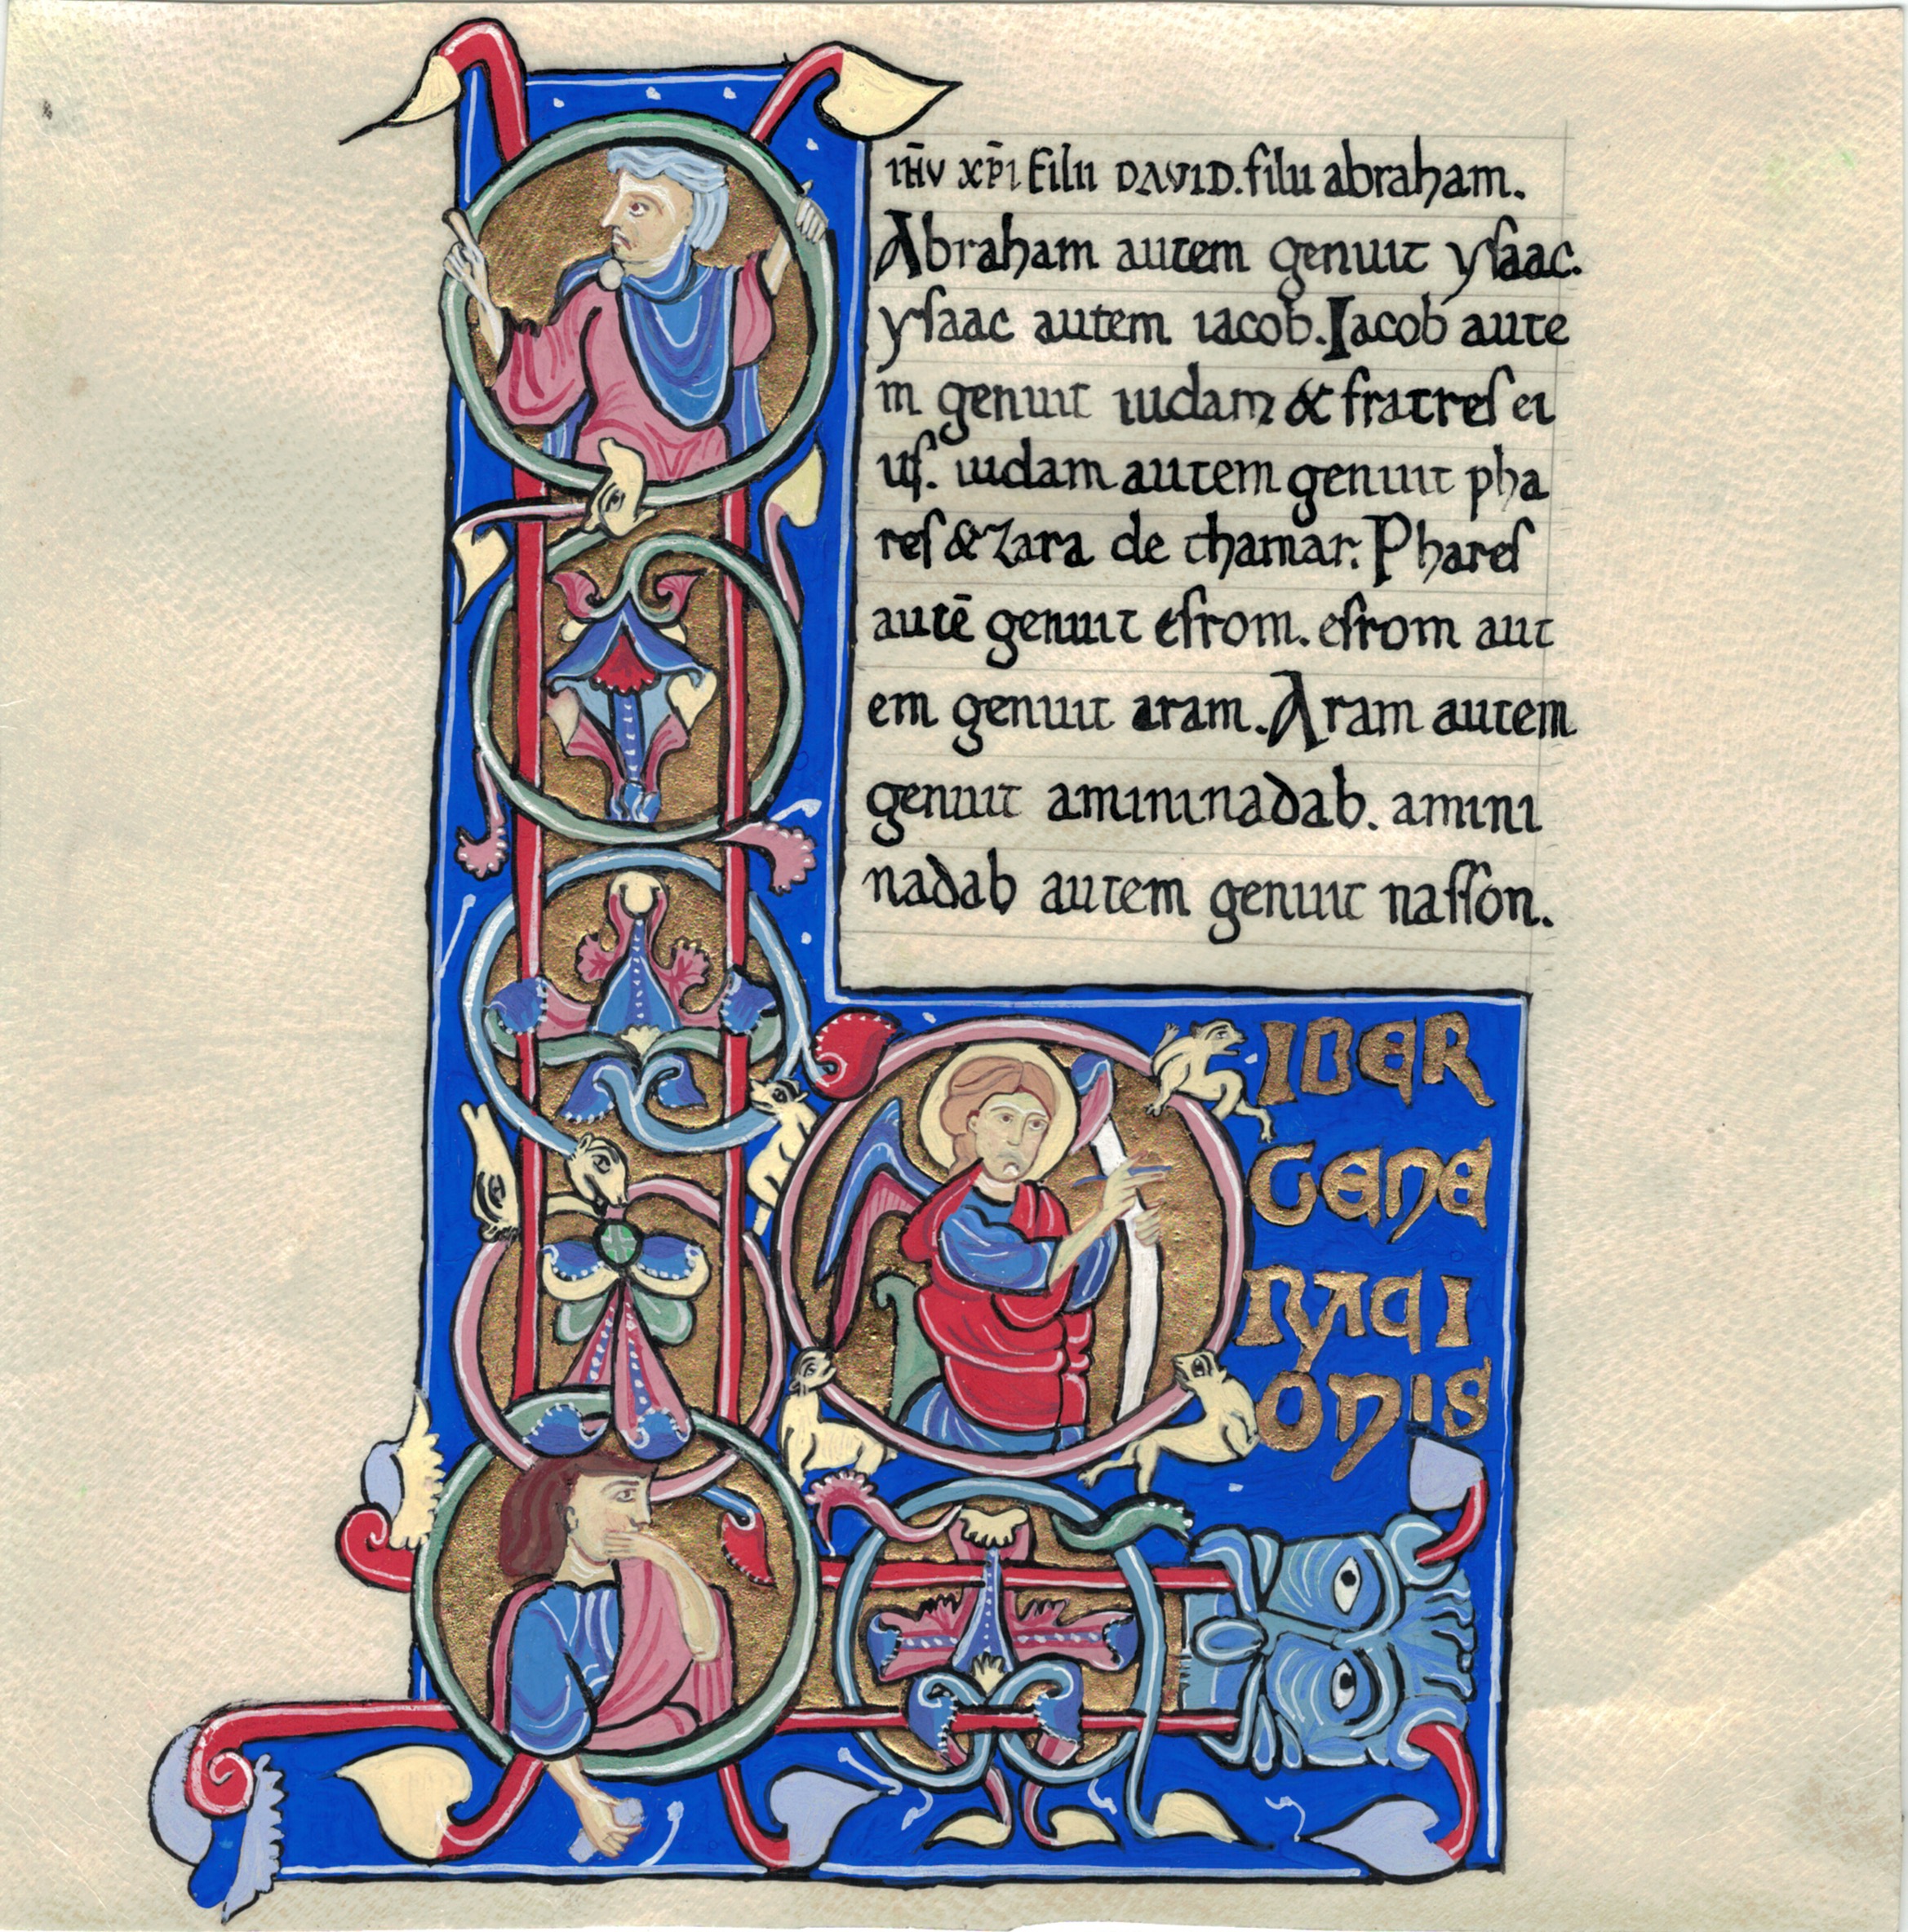 L
IBER
GENE
RACI
ONIS
ιħ̄v xp̄i filii DAVID. filii abraham.
Abraham autem genuit ysaac.
ysaac autem iacob. Iacob aute
m genuit iudam & fratres ei
us. iudam autem genuit pha
res & zara de thamar. Phares
autē genuit esrom. esrom aut
em genuit aram. Aram autem
genuit amininadab. amini
nadab autem genuit nasson.